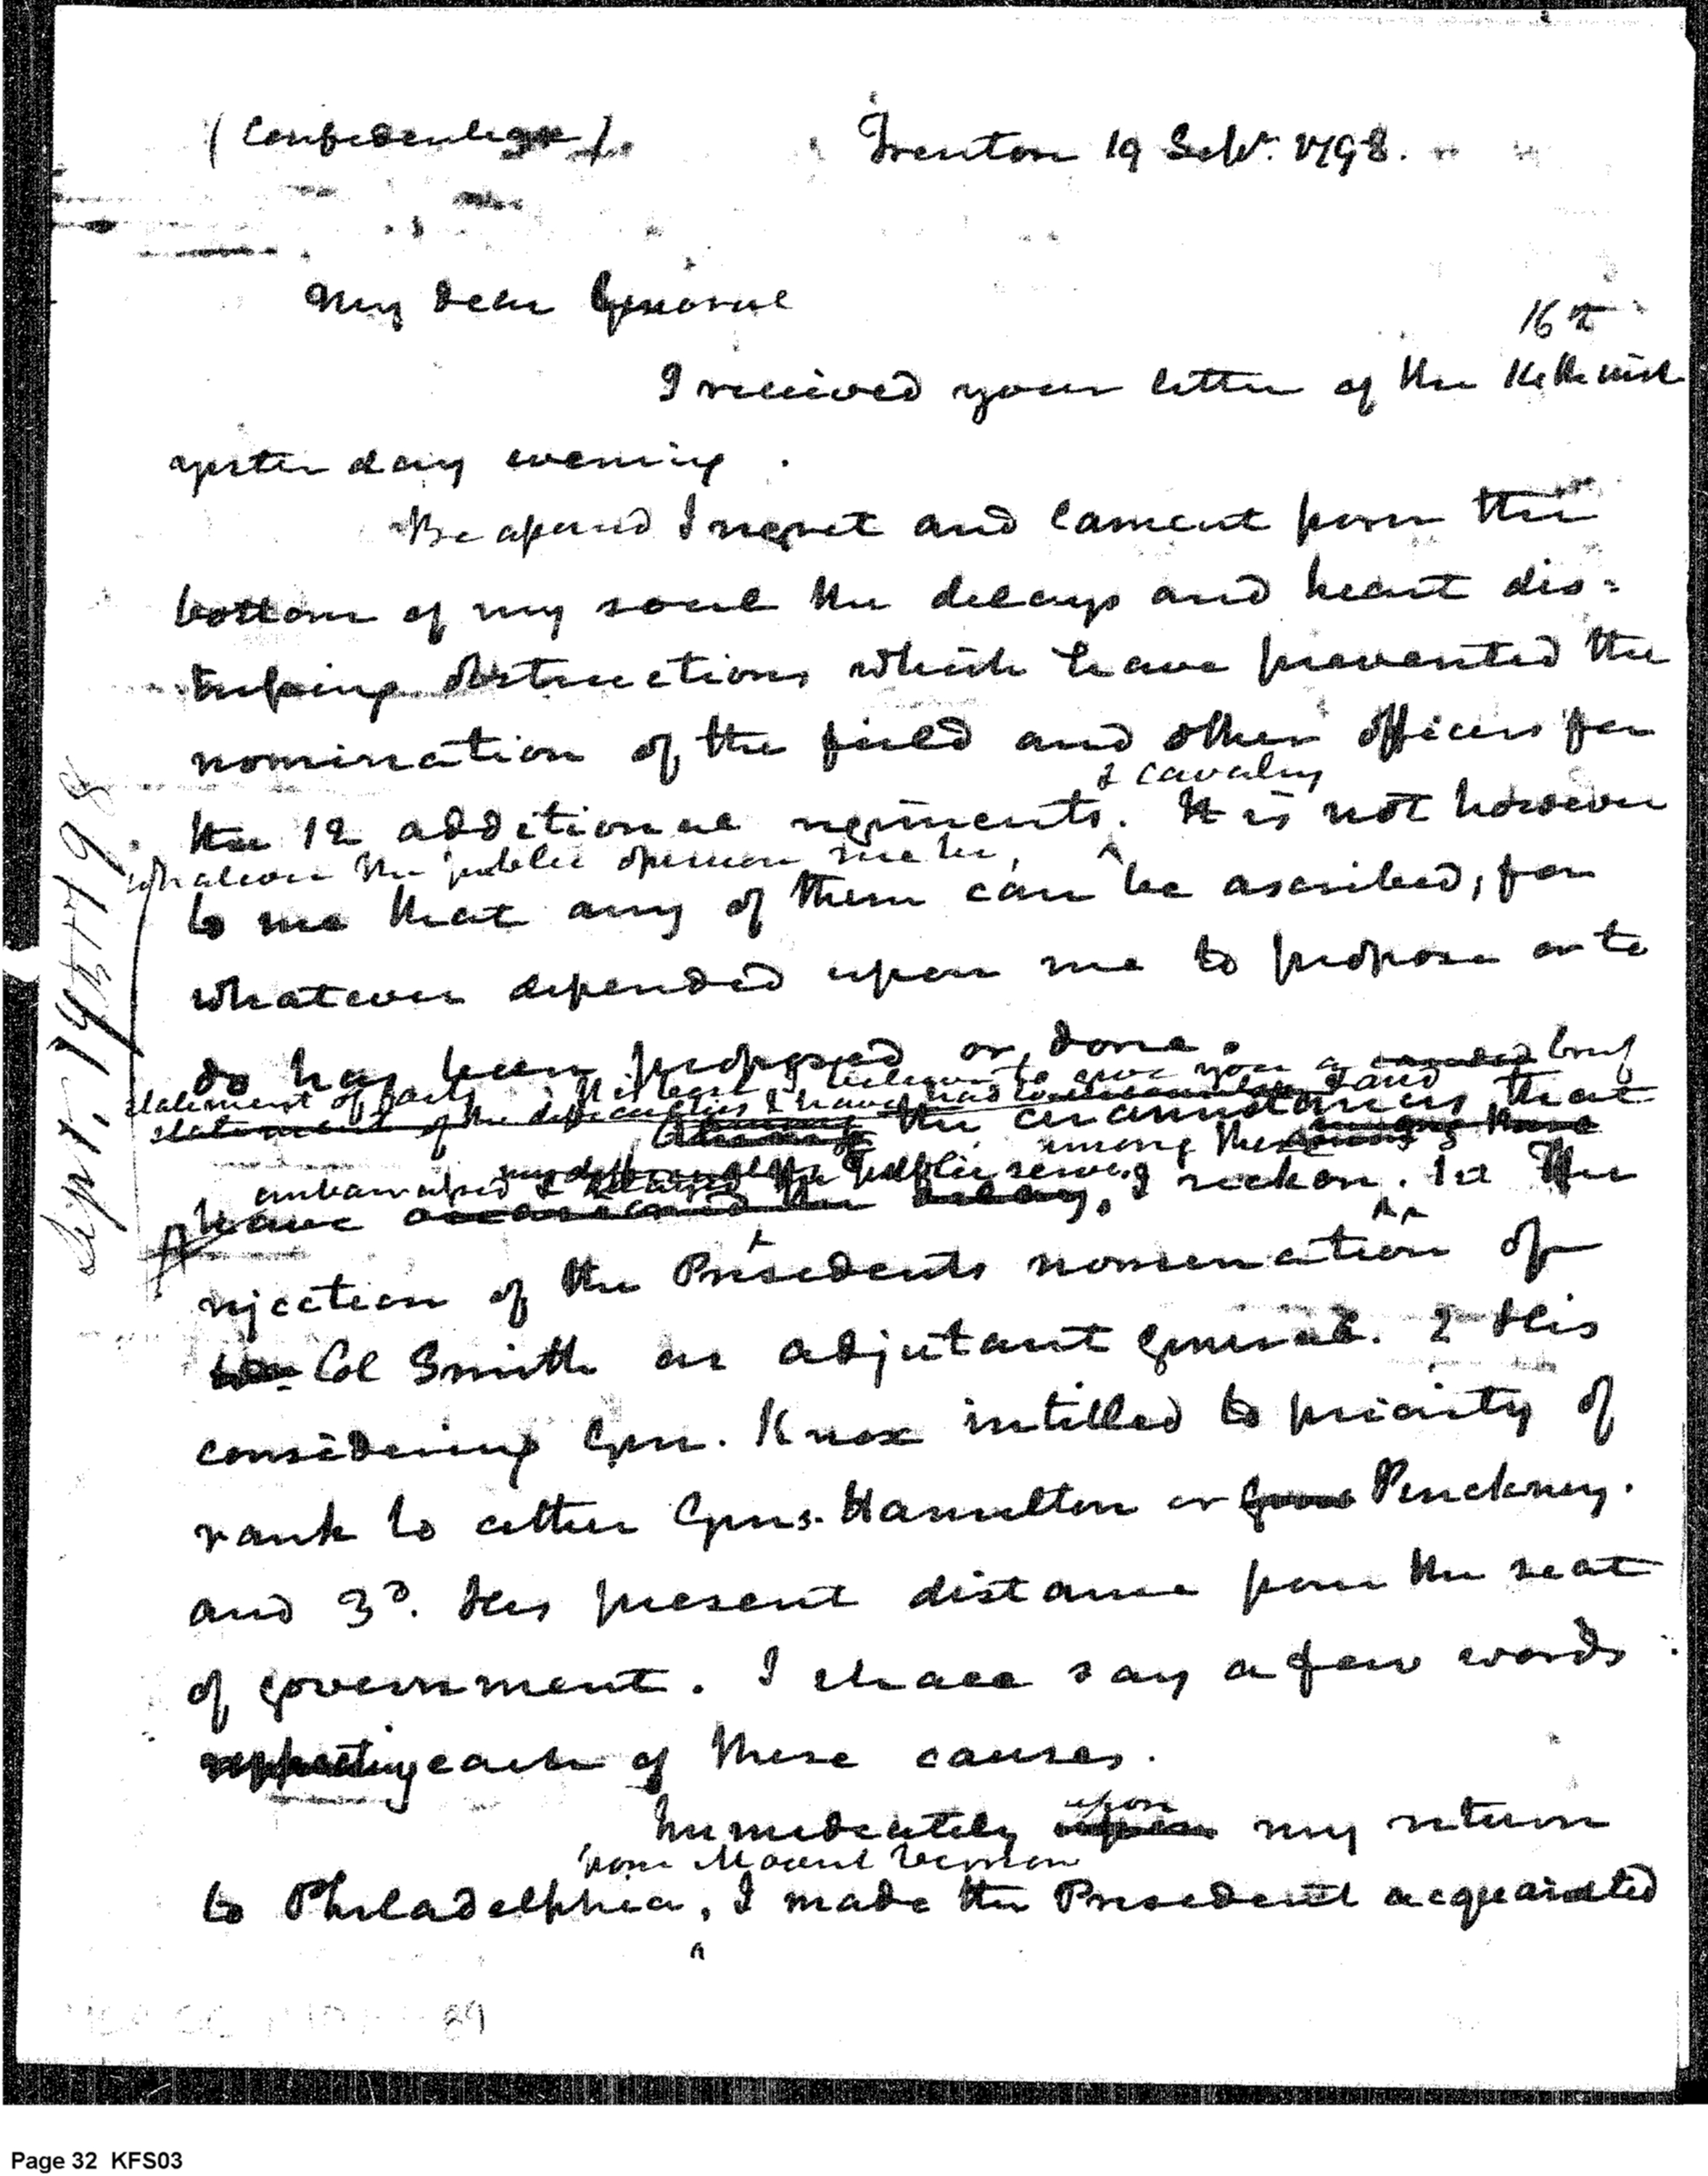 (Confidential)
Trenton 19 Sept. 1798.
My dear General
16th
I received your letter of the 16th inst
yesterday evening.
Be assured I regret and lament from the
bottom of my soul the delays and heart dis=
tressing obstructions which have prevented the
nomination of the field and other officers for
& cavalry
the 12 additional regiments. It is not however
whatever the public opinion may be,
to me that any of them can be ascribed, for
whatever depended upon me to propose or to
do has been proposed or done.
you a brief
statement of facts
statement of the difficulties I have had to and
the circumstances that
among these
embarrassed & the public service
have I reckon. 1st The
rejection of the Presidents nomination of
Col Smith as adjutant general. 2 His
considering Gen. Knox intitled to priority of
rank to either Gens. Hamilton or Pinckney.
and 3d. His present distance from the seat
of government. I shall say a few words
respecting each of these causes.
upon
Immediately upon my return
from Mount Vernon
to Philadelphia, I made the President acquainted
Sept. 19th 1798
29
Page 32 KFS03